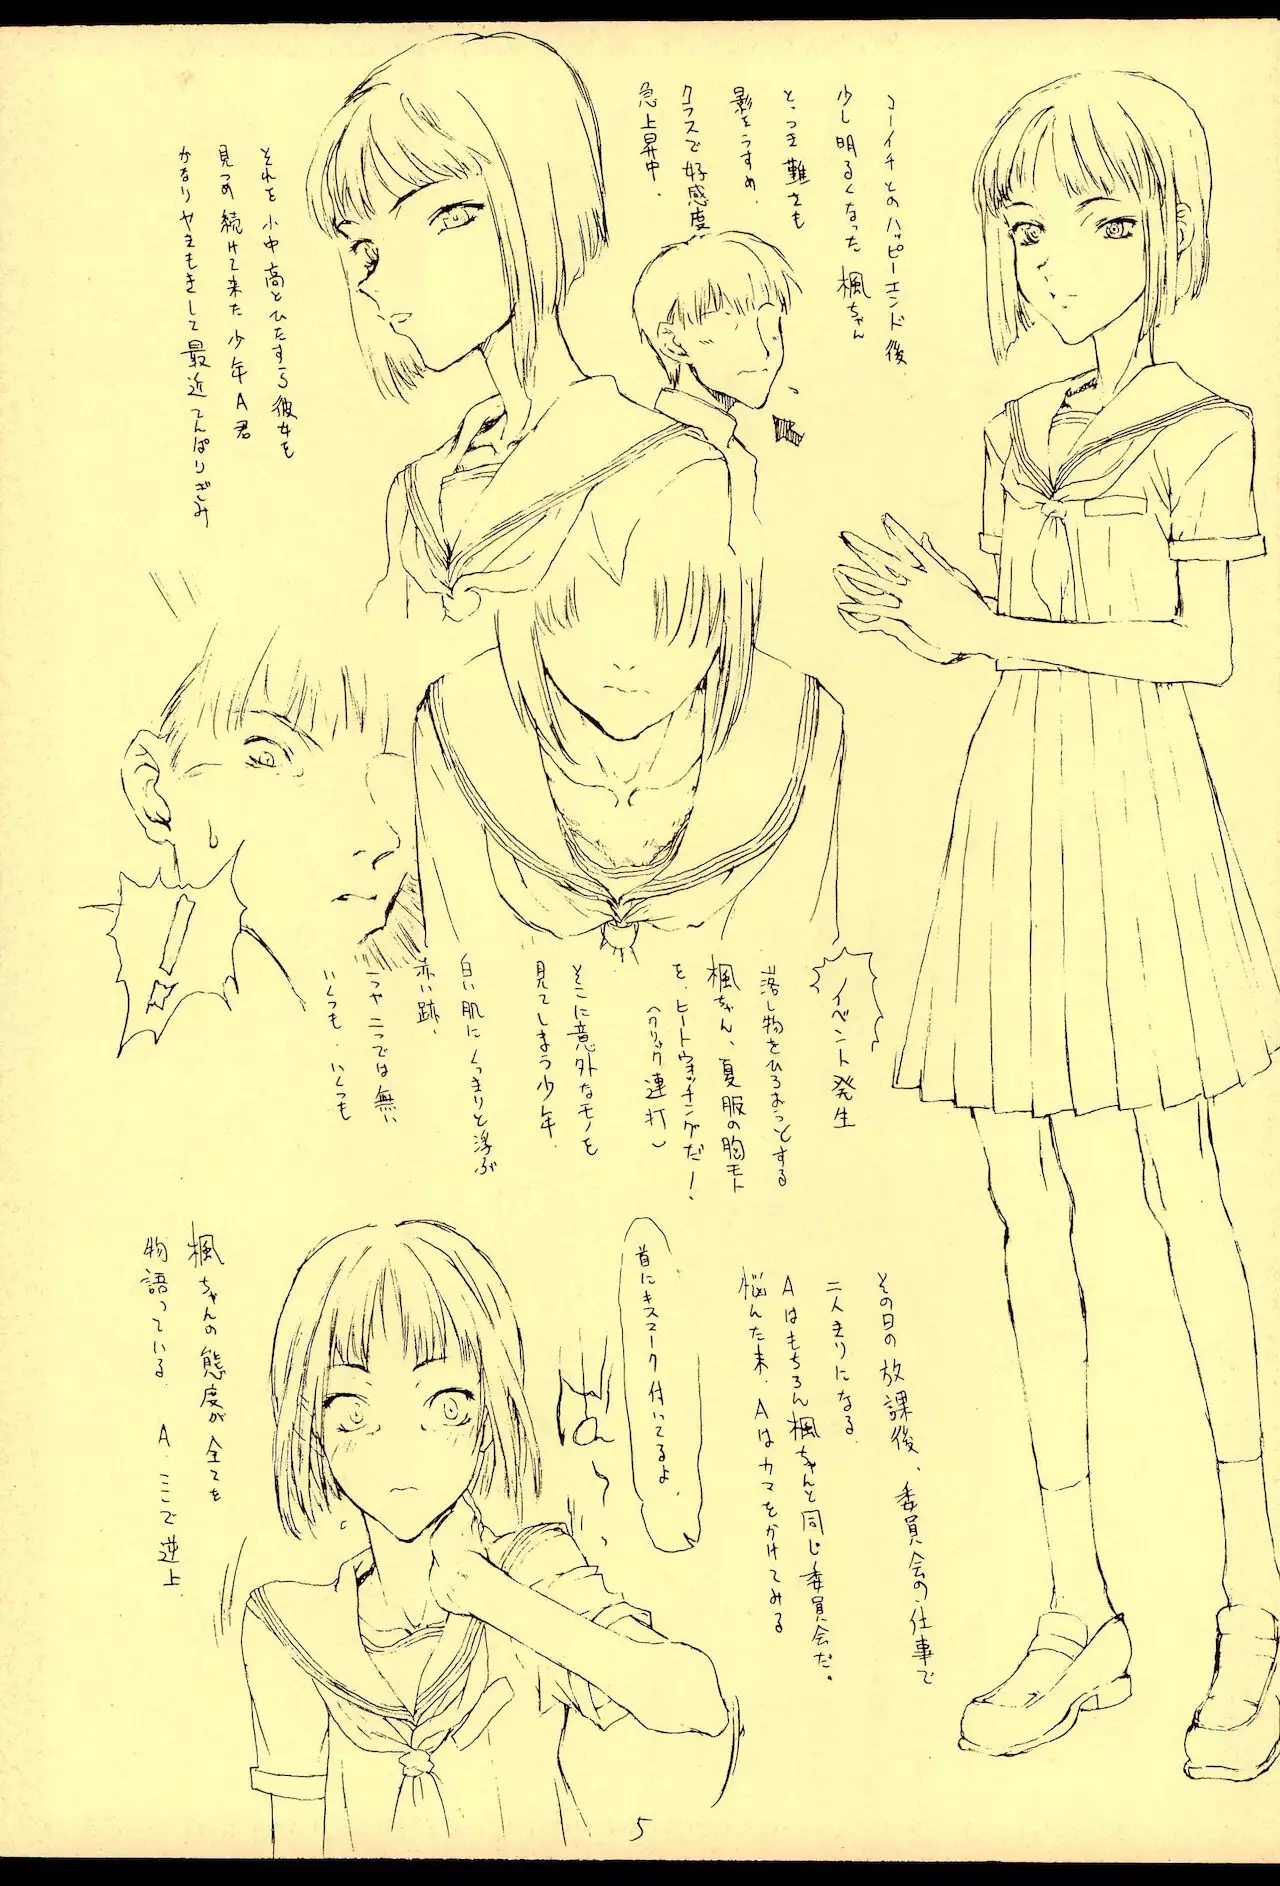 コーイチとのハッピーエンド後
少し明るくなった楓ちゃん
とっつき難さも
影をうすめ、
クラスで好感度
急上昇中、
それを小中高とひたすら彼女を
見つめ続けて来た少年A君
かなりヤキモキして最近てんぱりぎみ
イベント発生
落し物をひろおっとする
楓ちゃん、夏服の胸モト
を、ヒートウォッチングだ!
(クリック連打)
そこに意外なモノを
見てしまう少年、
白い肌にくっきりと浮ぶ
赤い跡、
一つや二つでは無い
いくつも、いくつも
その日の放課後、委員会の仕事で
二人きりになる、
Aはもちろん楓ちゃんと同じ委員会だ。
悩んだ末、Aはカマをかけてみる
首にキスマーク付いてるよ、
楓ちゃんの態度が全てを
物語っている、A、ここで逆上、
5